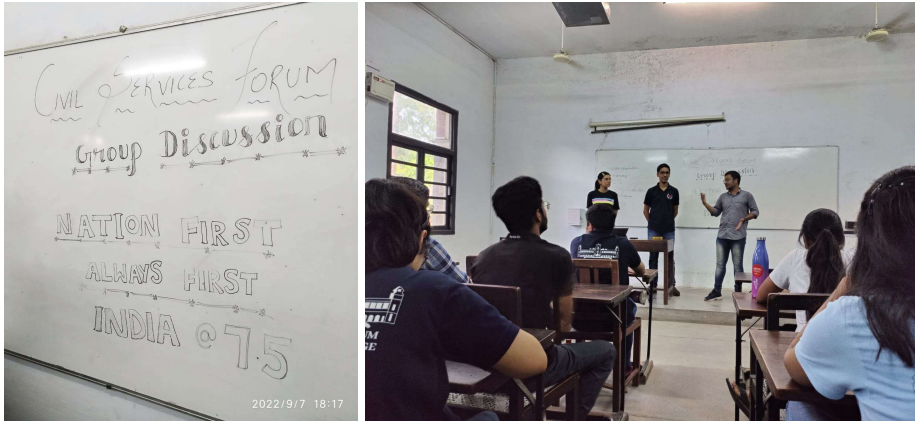 CIVIL SERVICES FORUM
Group Discussion
NATION FIRST
ALWAYS FIRST
INDIA @ 75
2022/9/7 18:17
Group Discussion